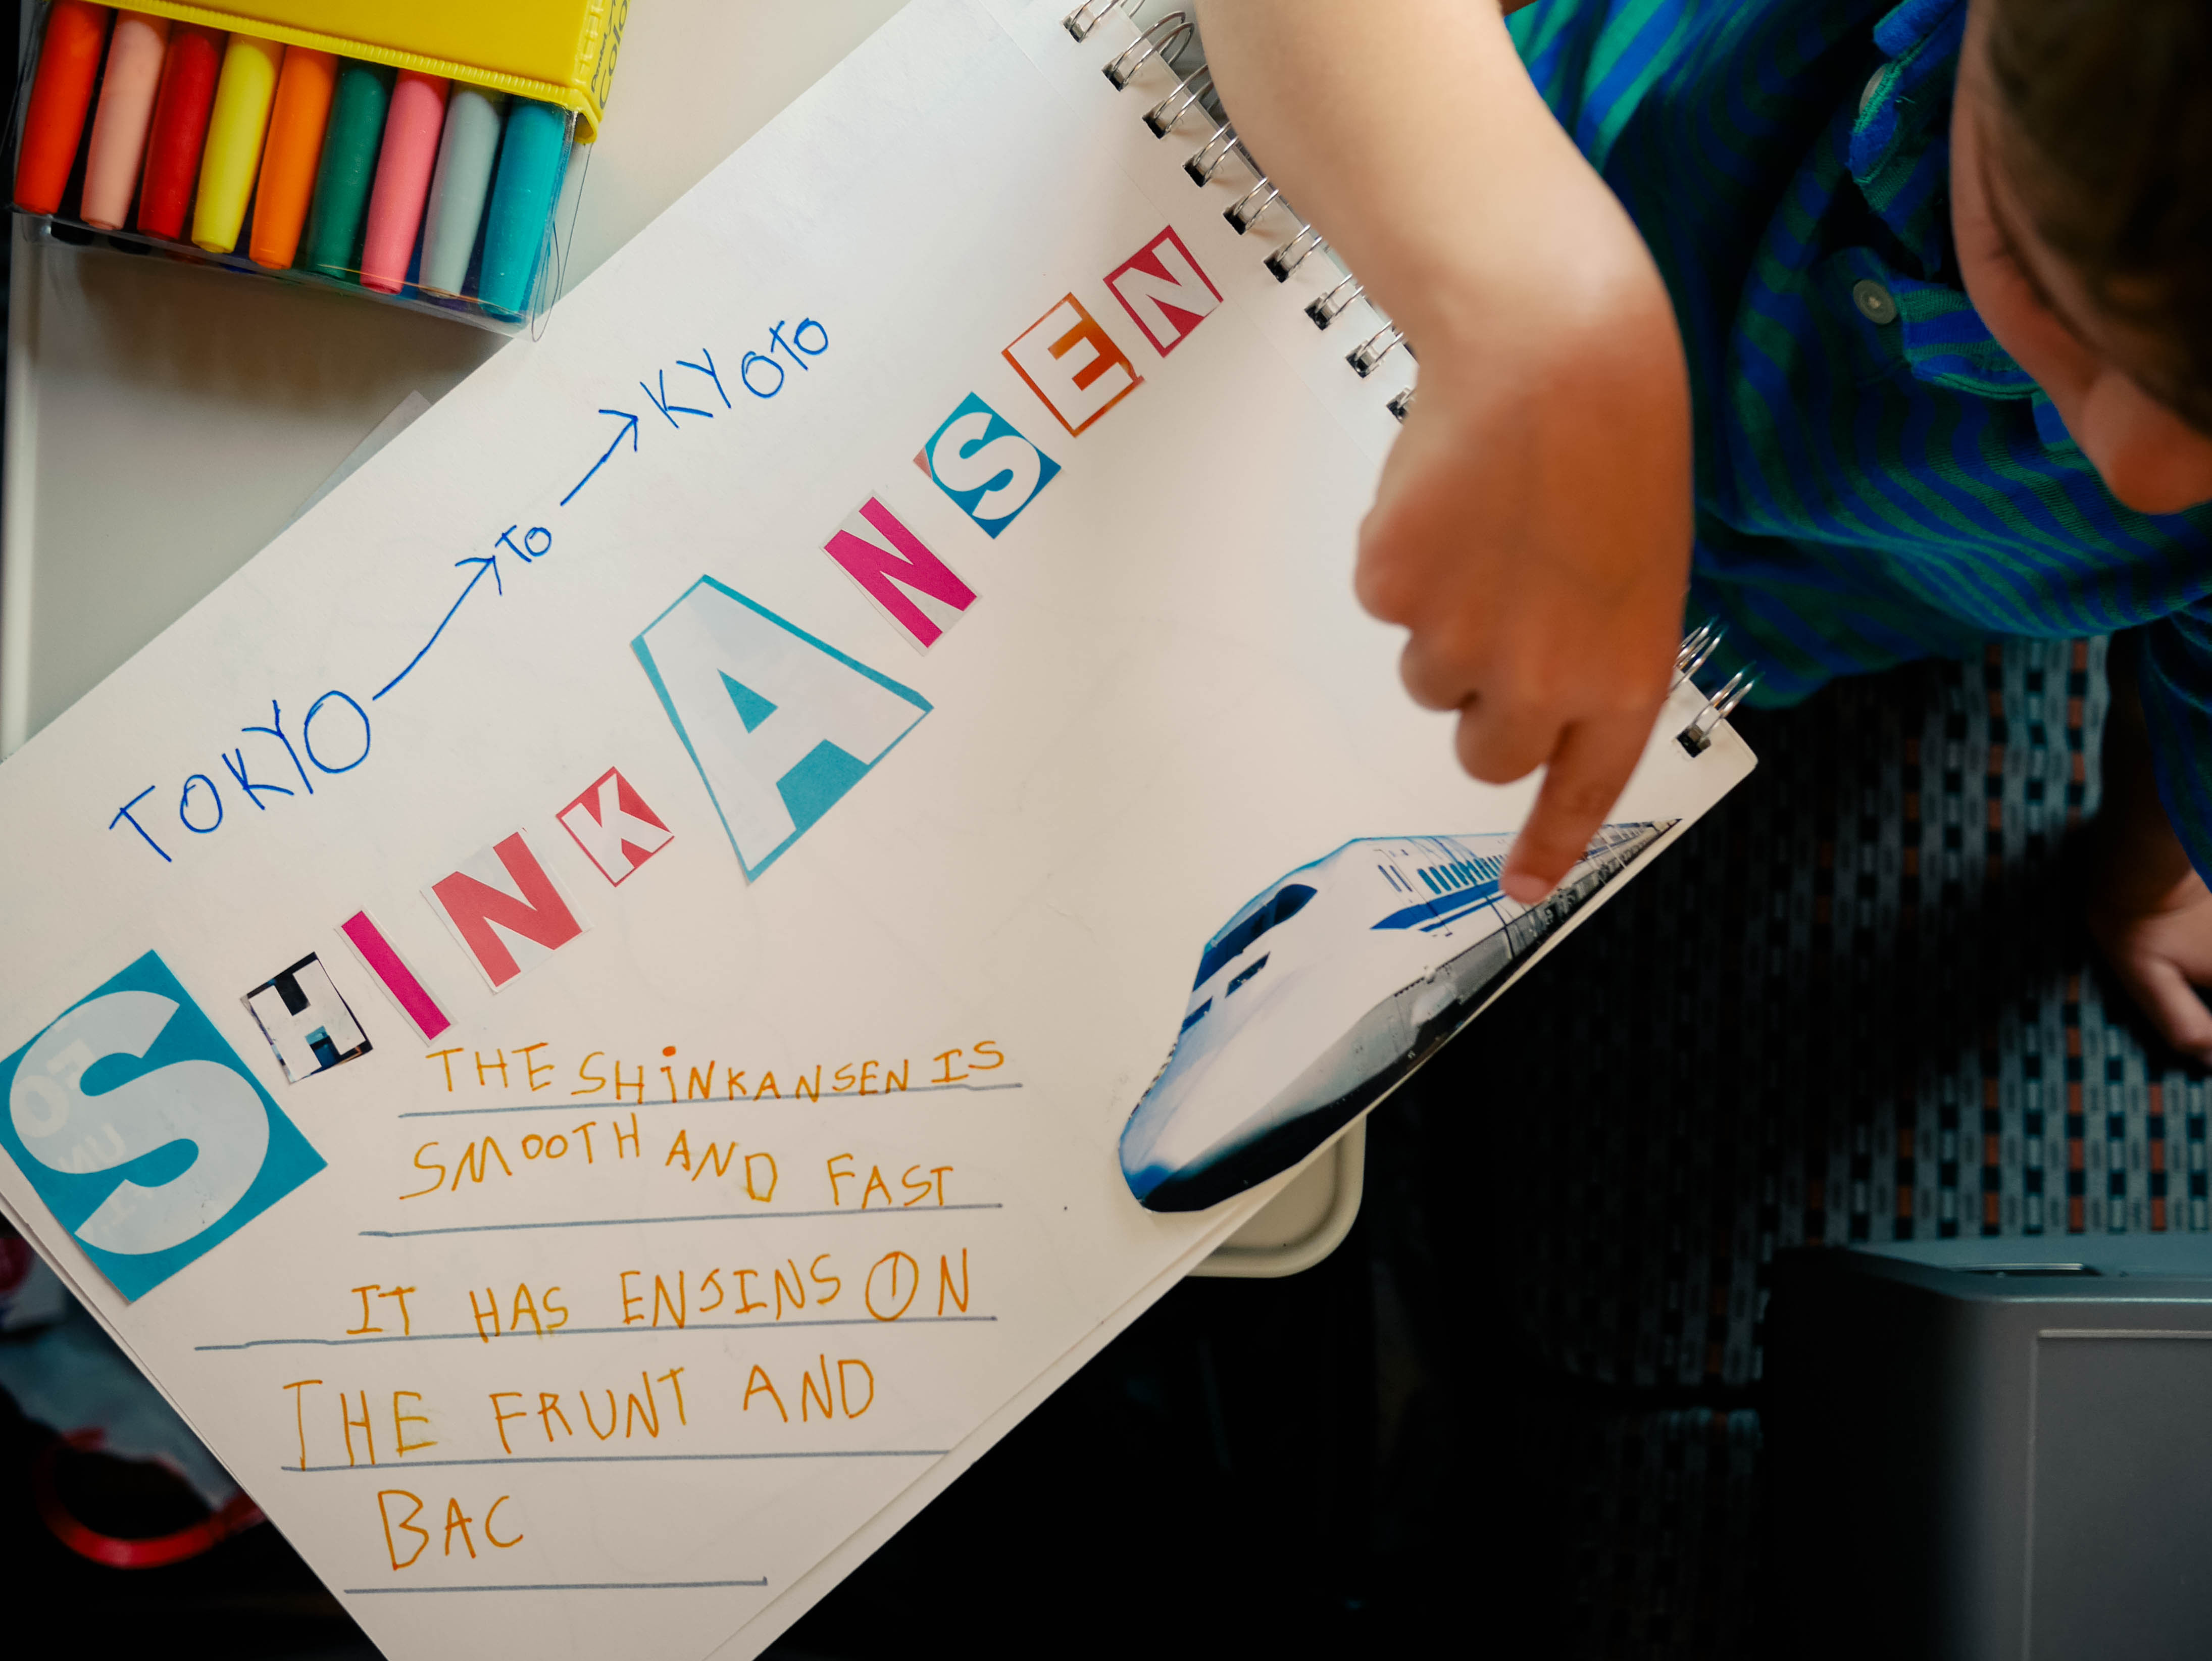 TOKYO → TO → KYOTO
SHINKANSEN
THE SHiNKANSEN IS
SMOOTH AND FAST
IT HAS ENJINS ON
THE FRUNT AND
BAC